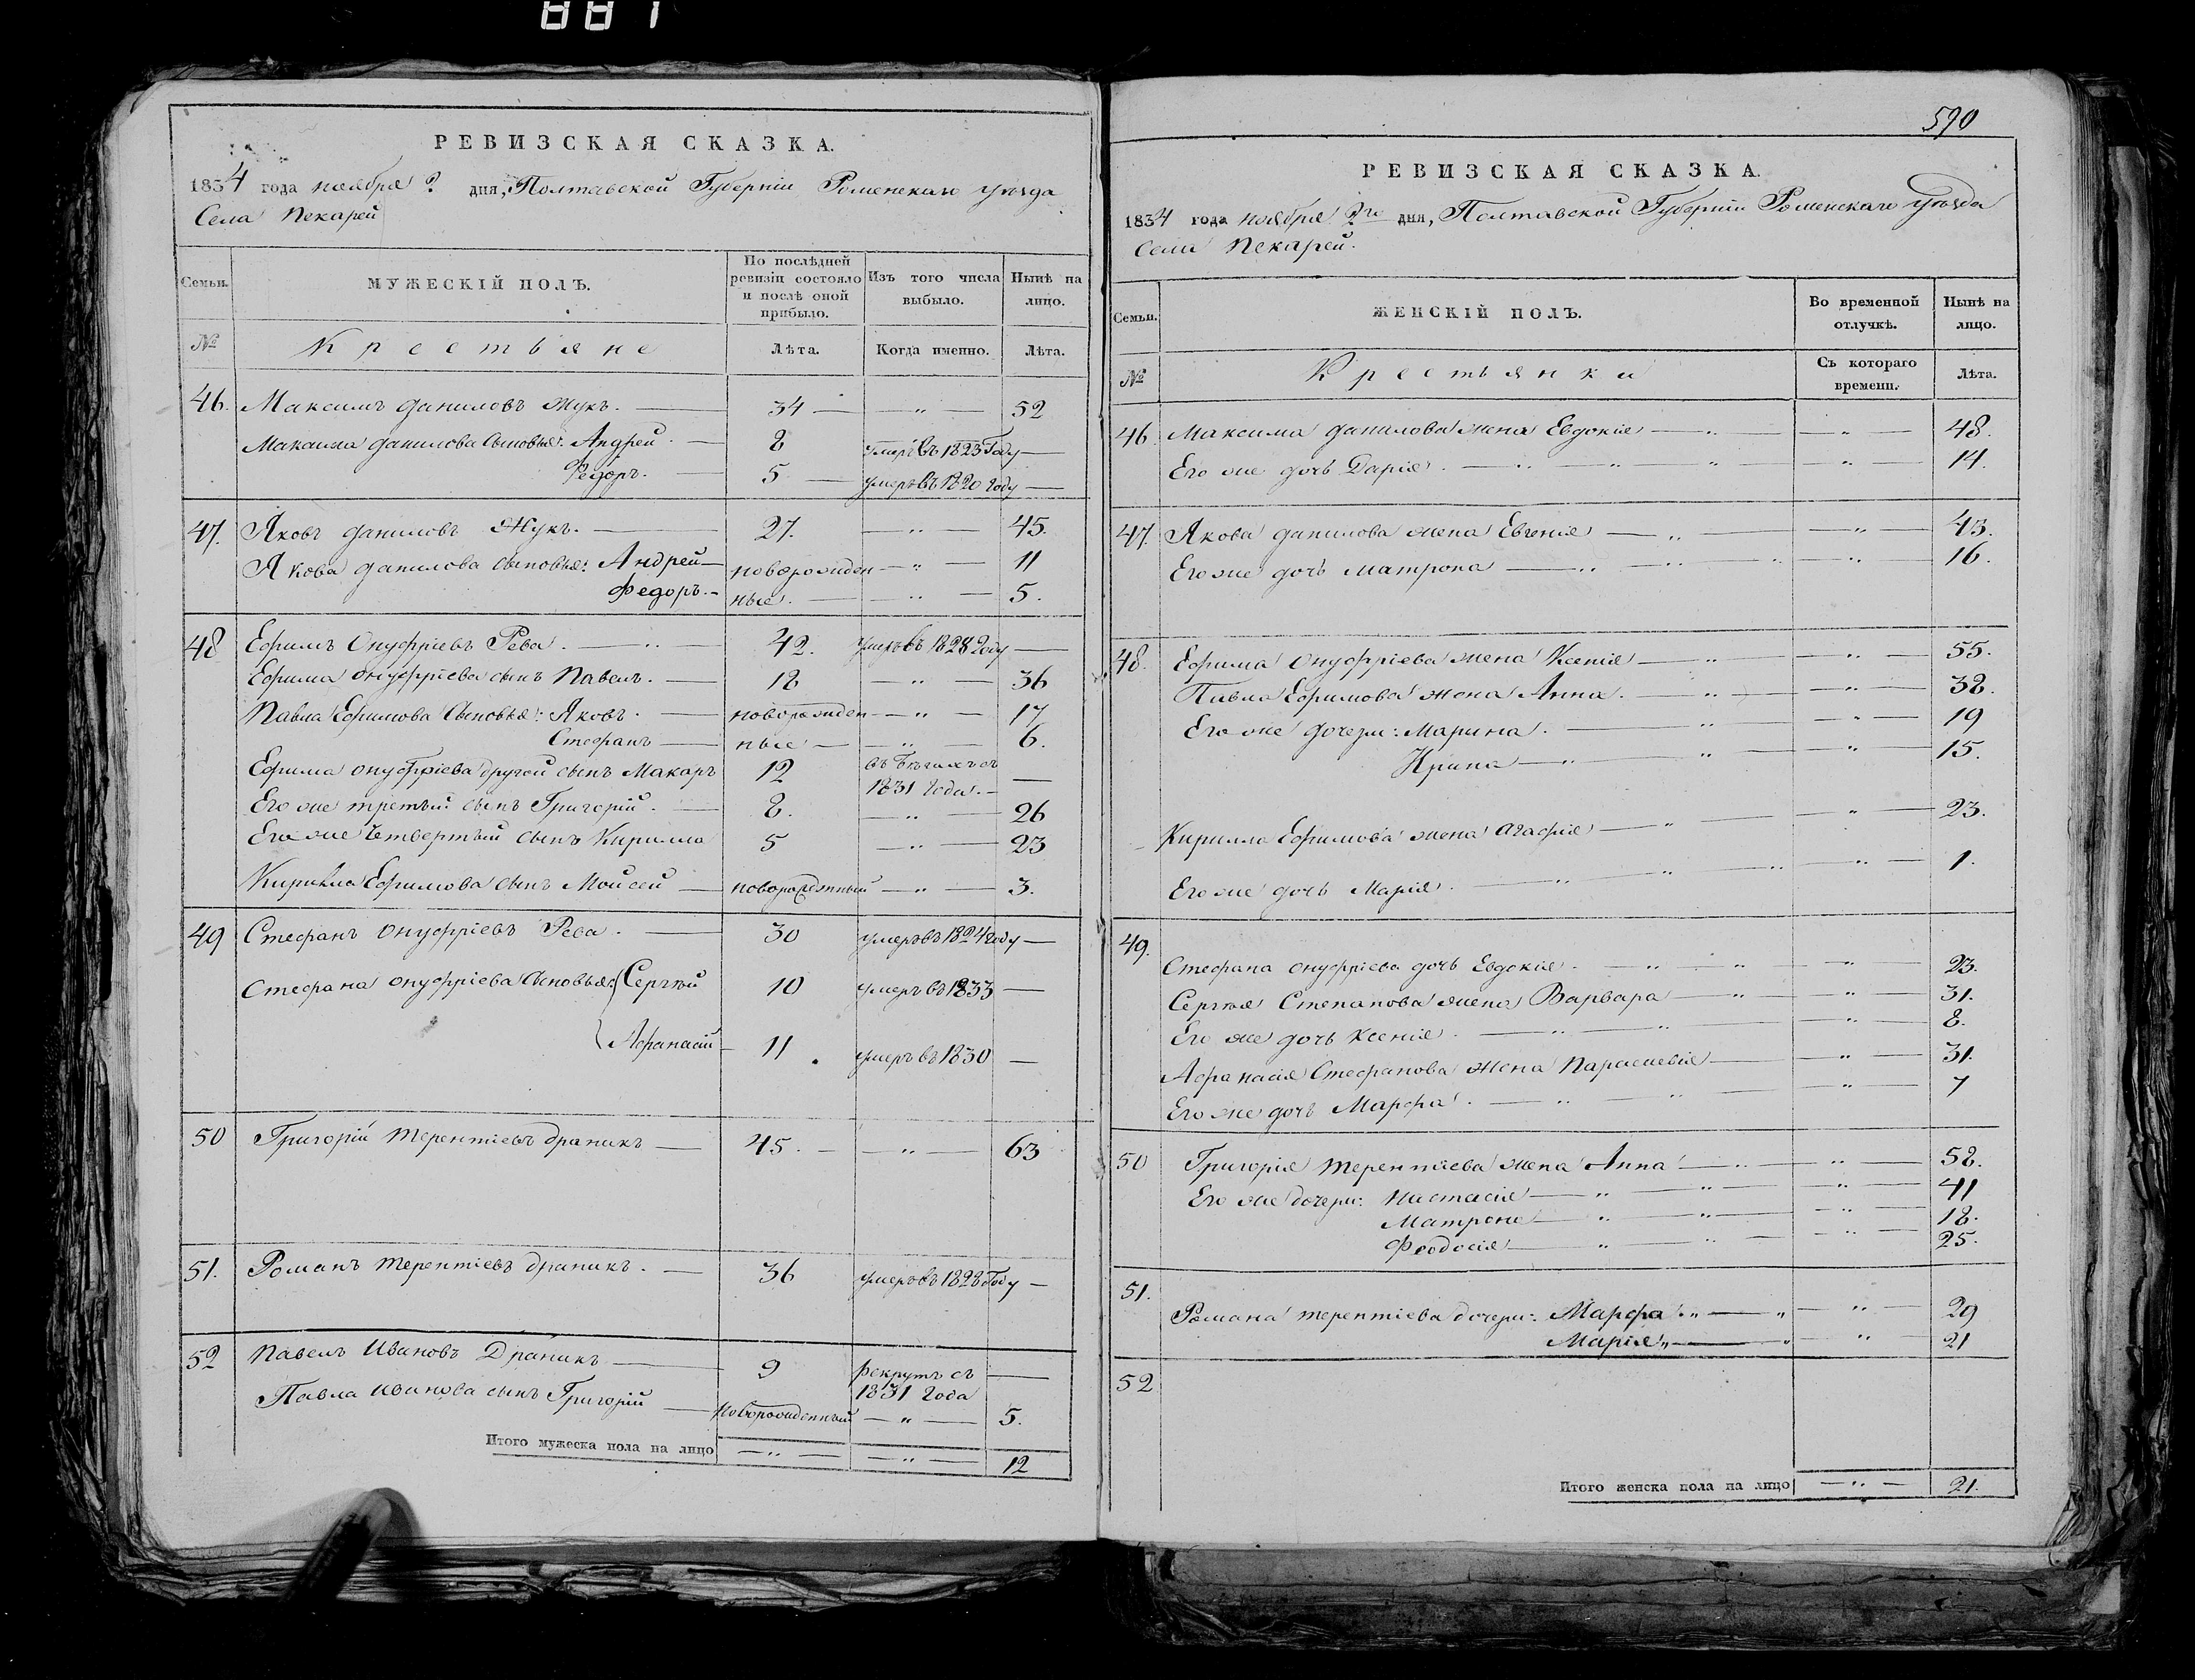 887
РЕВИЗСКАЯ СКАЗКА.
1834 года ноября 2 дня, Полтавской Губерніи Роменскаго уѣзда
Села Пекарей
Семьи.
МУЖЕСКІЙ ПОЛЪ.
По послѣдней ревизіи состояло и послѣ оной прибыло.
Изъ того числа выбыло.
Нынѣ на лицо.
№
Крестьяне
Лѣта.
Когда именно.
Лѣта.
46. Максимъ Даниловъ Жукъ. 34 — „ — 52
Максима Данилова сыновья: Андрей. 8 умеръ въ 1823 Году —
Федоръ. 5 умеръ въ 1820 Году —
47. Яковъ Даниловъ Жукъ. 27. — „ — 45.
Якова Данилова сыновья: Андрей — новорожден — „ — 11
Федоръ. — ные. — „ — 5.
48 Ефимъ Онуфріевъ Рева. 42. умеръ въ 1828 Году —
Ефима Онуфріева сынъ Павелъ. 18 — „ — 36
Павла Ефимова сыновья: Яковъ. новорожден — „ — 17
Стефанъ — ные — „ — 6.
Ефима Онуфріева другой сынъ Макаръ 12 въ бѣгахъ съ 1831 Года. —
Его же третій сынъ Григорій. 8. — „ — 26
Его же четвертый сынъ Кирилло 5 — „ — 23
Кирилла Ефимова сынъ Моисей — новорожденный — „ — 3.
49 Стефанъ Онуфріевъ Рева. 30 умеръ въ 1824 Году —
Стефана Онуфріева сыновья: Сергѣй 10 умеръ въ 1833 —
Афанасій 11. умеръ въ 1830 —
50 Григорій Терентіевъ Драникъ — 45. — „ — 63
51. Романъ Терентіевъ Драникъ. 36 умеръ въ 1828 Году —
52 Павелъ Ивановъ Драникъ — 9 рекрутъ съ 1831 Года —
Павла Иванова сынъ Григорій — новорожденный — „ — 5.
Итого мужеска пола на лицо — „ — — „ — 12
590
РЕВИЗСКАЯ СКАЗКА.
1834 года ноября 2го дня, Полтавской Губерніи Роменскаго уѣзда
Села Пекарей.
Семьи.
ЖЕНСКІЙ ПОЛЪ.
Во временной отлучкѣ.
Нынѣ на лицо.
№
Крестьянки
Съ котораго времени.
Лѣта.
46 Максима Данилова жена Евдокія — „ — 48.
Его же дочь Дарія. — „ — 14.
47. Якова Данилова жена Евгенія — „ — 43.
Его же дочь Матрона — „ — 16.
48. Ефима Онуфріева жена Ксенія — „ — 55.
Павла Ефимова жена Анна. — „ — 38.
Его же дочери: Марина. — „ — 19
Ирина — „ — 15.
Кирилла Ефимова жена Агафія — „ — 23.
Его же дочь Марія. — „ — 1.
49. Стефана Онуфріева дочь Евдокія. — „ — 23.
Сергѣя Степанова жена Варвара — „ — 31.
Его же дочь Ксенія. — „ — 8.
Афанасія Стефанова жена Параскевія — „ — 31.
Его же дочь Марфа. — „ — 7
50 Григорія Терентіева жена Анна — „ — 58.
Его же дочери: Настасія — „ — 41
Матрона — „ — 18.
Феодосія — „ — 25.
51. Романа Терентіева дочери: Марфа „ — „ — 29
Марія „ — „ — 21
52
Итого женска пола на лицо — „ — 21.